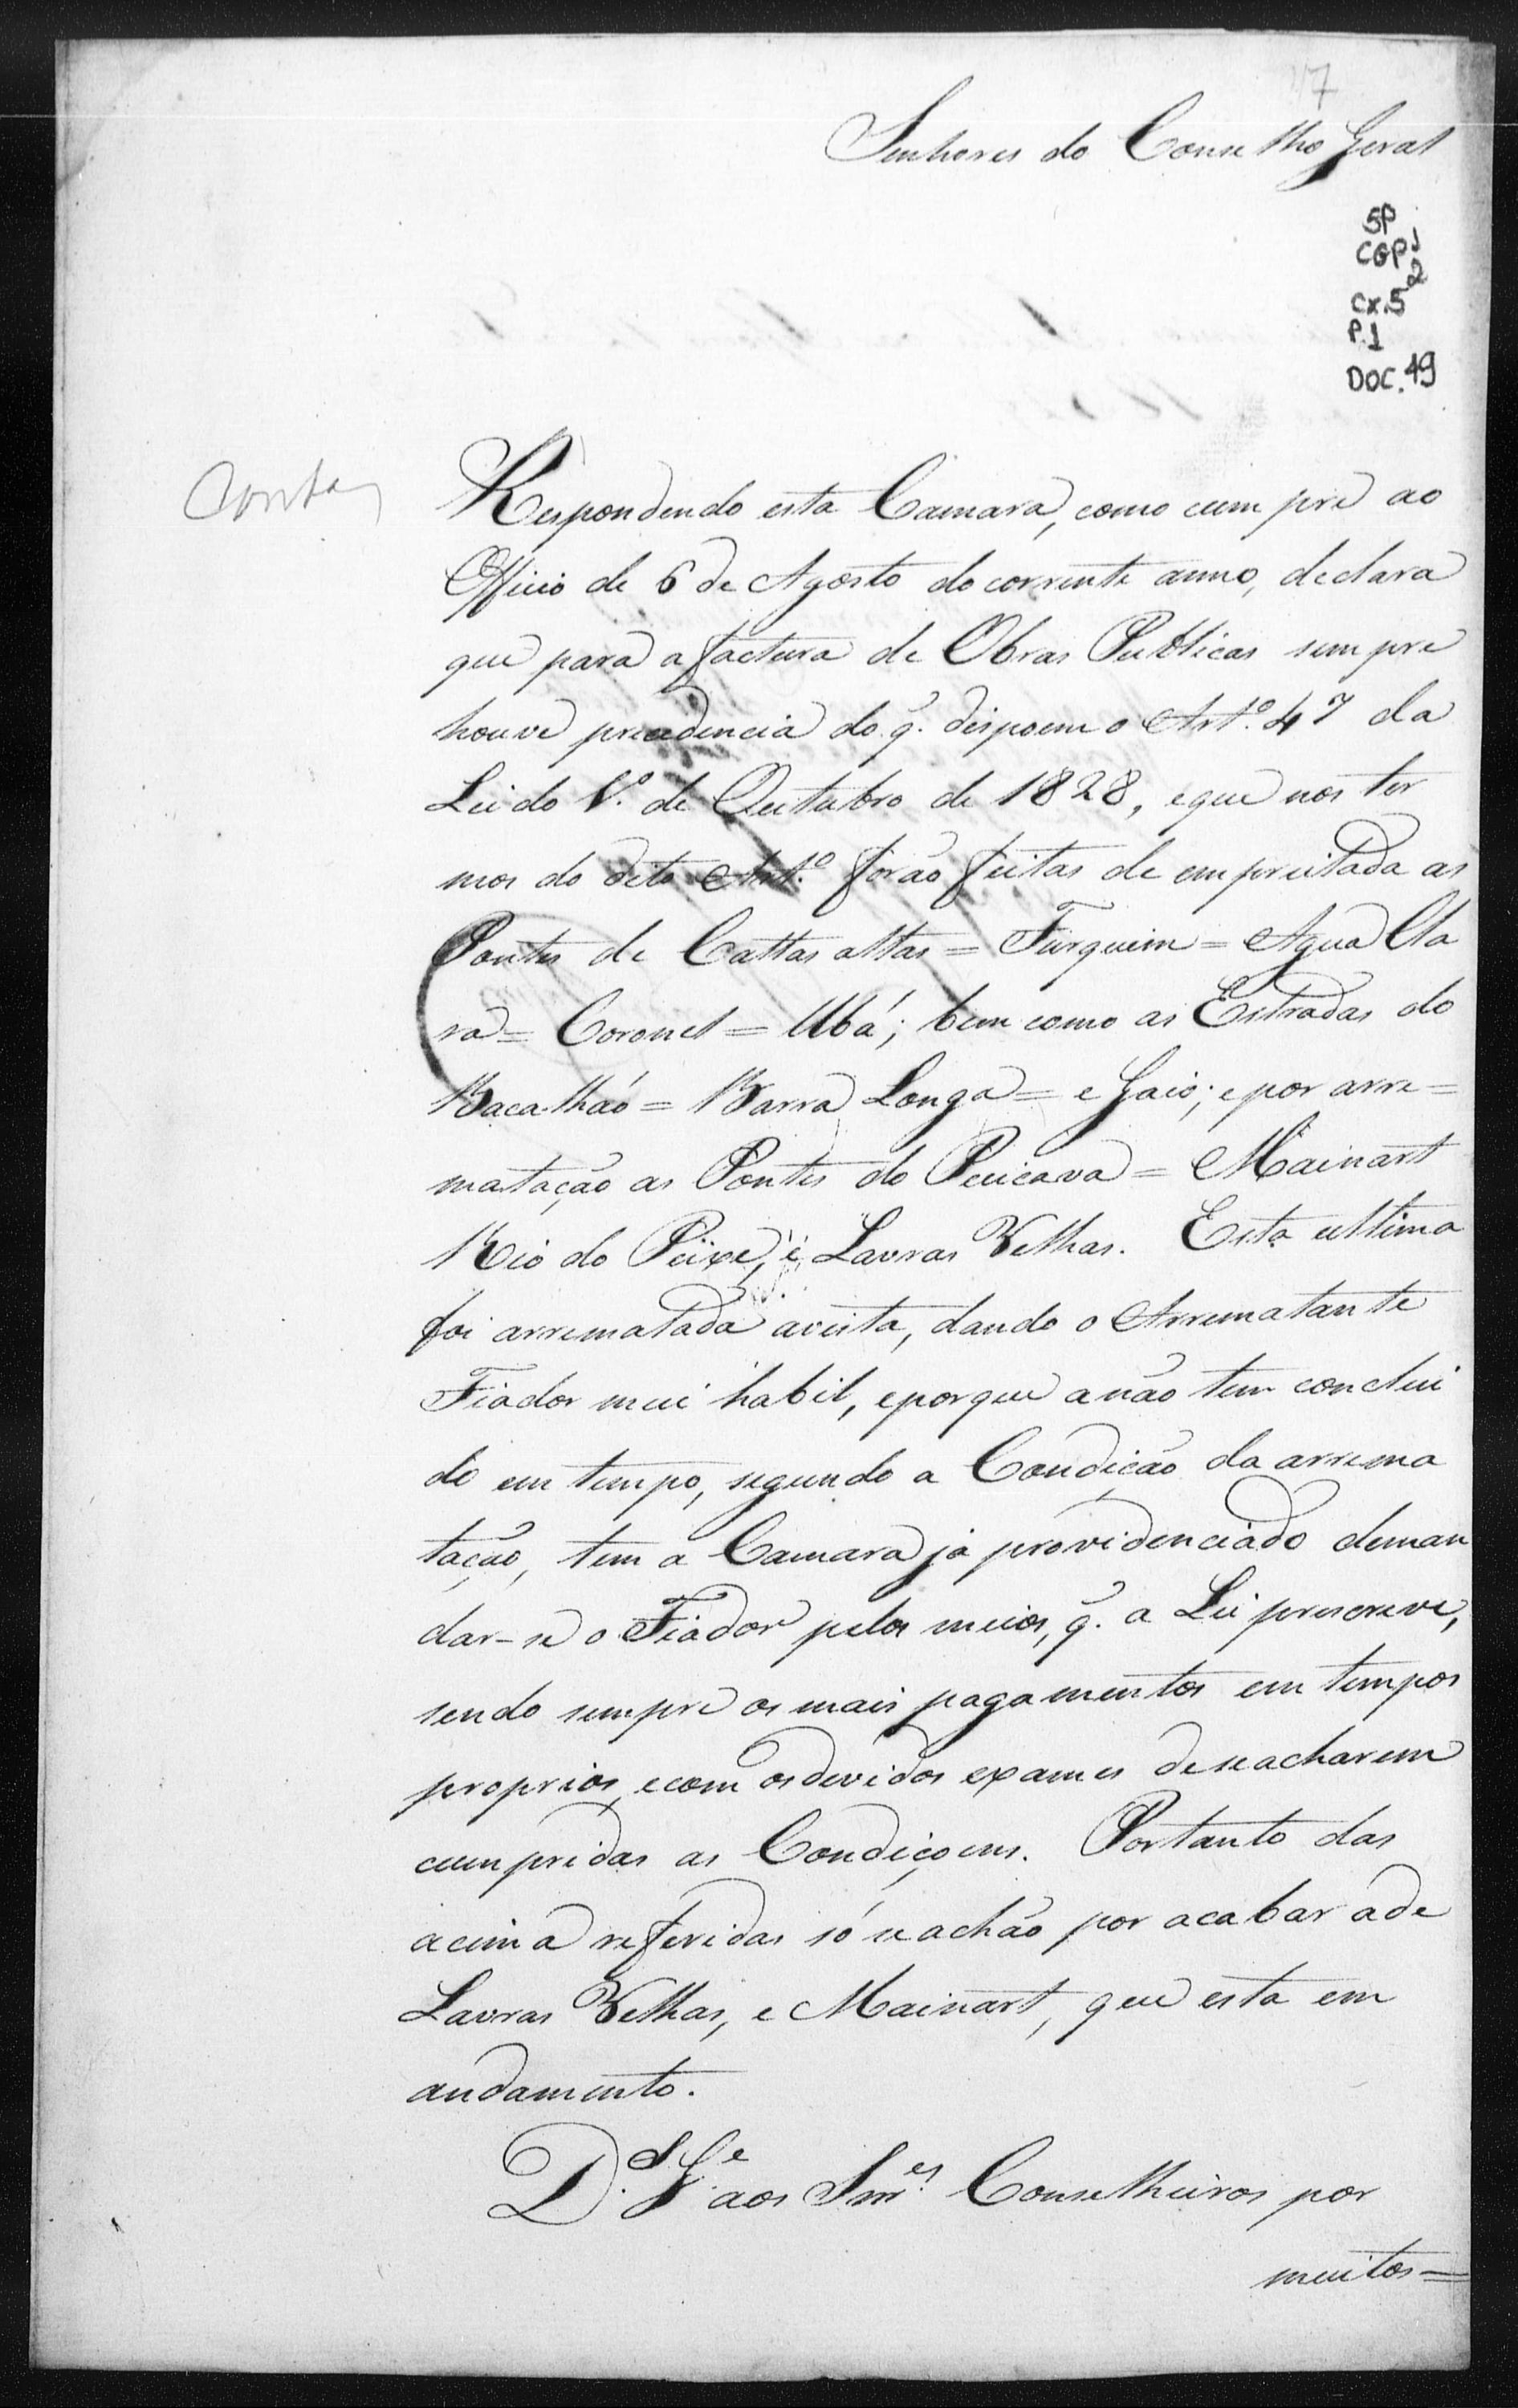 117
Senhores do Conselho Geral
SP
CGP1
Cx.52
P.1
DOC.49
Contas
Respondendo esta Camara, como cumpre ao
Officio de 6 de Agosto do corrente anno, declara
que para a factura de Obras Publicas sempre
houve precedencia do q̃. dispoem o Art.º 47 da
Lei do 1.º de Outubro de 1828, e que nos ter
mos do dito Art.º forão feitas de empreitada as
Pontes de Cattas altas = Furquim = Agua Cla
ra = Coronel = Ubá; bem como as Estradas do
Bacalháo = Barra Longa = e Gaio; e por arre=
matação as Pontes do = Mainart
Rio do Peixe, e Lavras Velhas. Esta ultima
foi arrematada avista, dando o Arrematante
Fiador mui habil, e porque a não tem conclui
do em tempo, segundo a Condição da arrema
tação, tem a Camara já providenciado deman
dar-se o Fiador pelos meios, q̃. a Lei prescreve,
sendo sempre os mais pagamentos em tempos
proprios, e com os devidos exames de se acharem
cumpridas as Condiçoens. Portanto das
acima referidas só se achão por acabar a de
Lavras Velhas, e Mainart, que esta em
andamento.
D.s G.e aos Snr.es Conselheiros por
muitos=